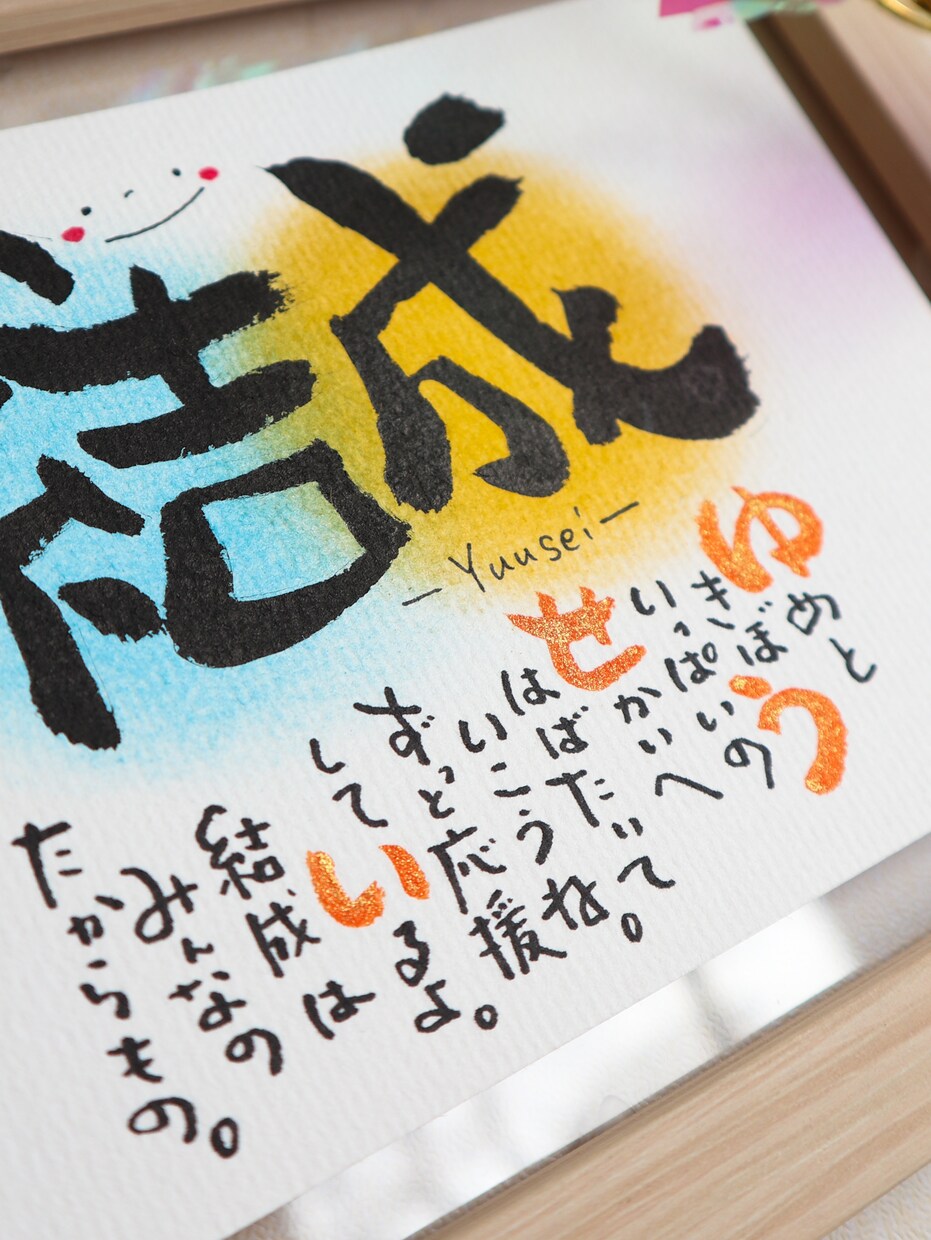 結成
-Yuusei-
ゆめと
きぼうの
いっぱいの
せかいへ
はばたいて
いこうね。
ずっと応援
しているよ。
結成は
みんなの
たからもの。